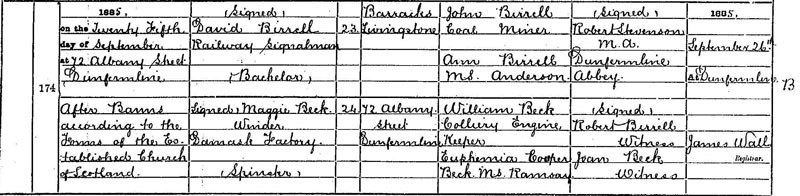 1885.
on the Twenty Fifth
day of September
at 72 Albany Street
Dunfermline
174
After Banns
according to the
Forms of the Es-
tablished Church
of Scotland.
(Signed)
David Birrell
Railway Signalman
(Bachelor)
(Signed) Maggie Beck.
Winder
Damask Factory.
(Spinster)
23
24
Barracks
Livingstone
72 Albany
Street
Dunfermline
John Birrell
Coal Miner
Ann Birrell
M.S. Anderson.
William Beck
Colliery Engine
Keeper
Euphemia Cooper
Beck M.S. Ramsay
(Signed)
Robert Stevenson
M.A.
Dunfermline
Abbey.
(Signed)
Robert Birrell
Witness
Joan Beck
Witness
1885.
September 26th
At Dunfermline
James Wall
Registrar.
B